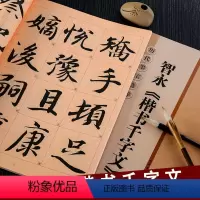 矯手頓足
悅豫且康
嫡後嗣
智永《楷书千字文》
书千字文
粉象优品